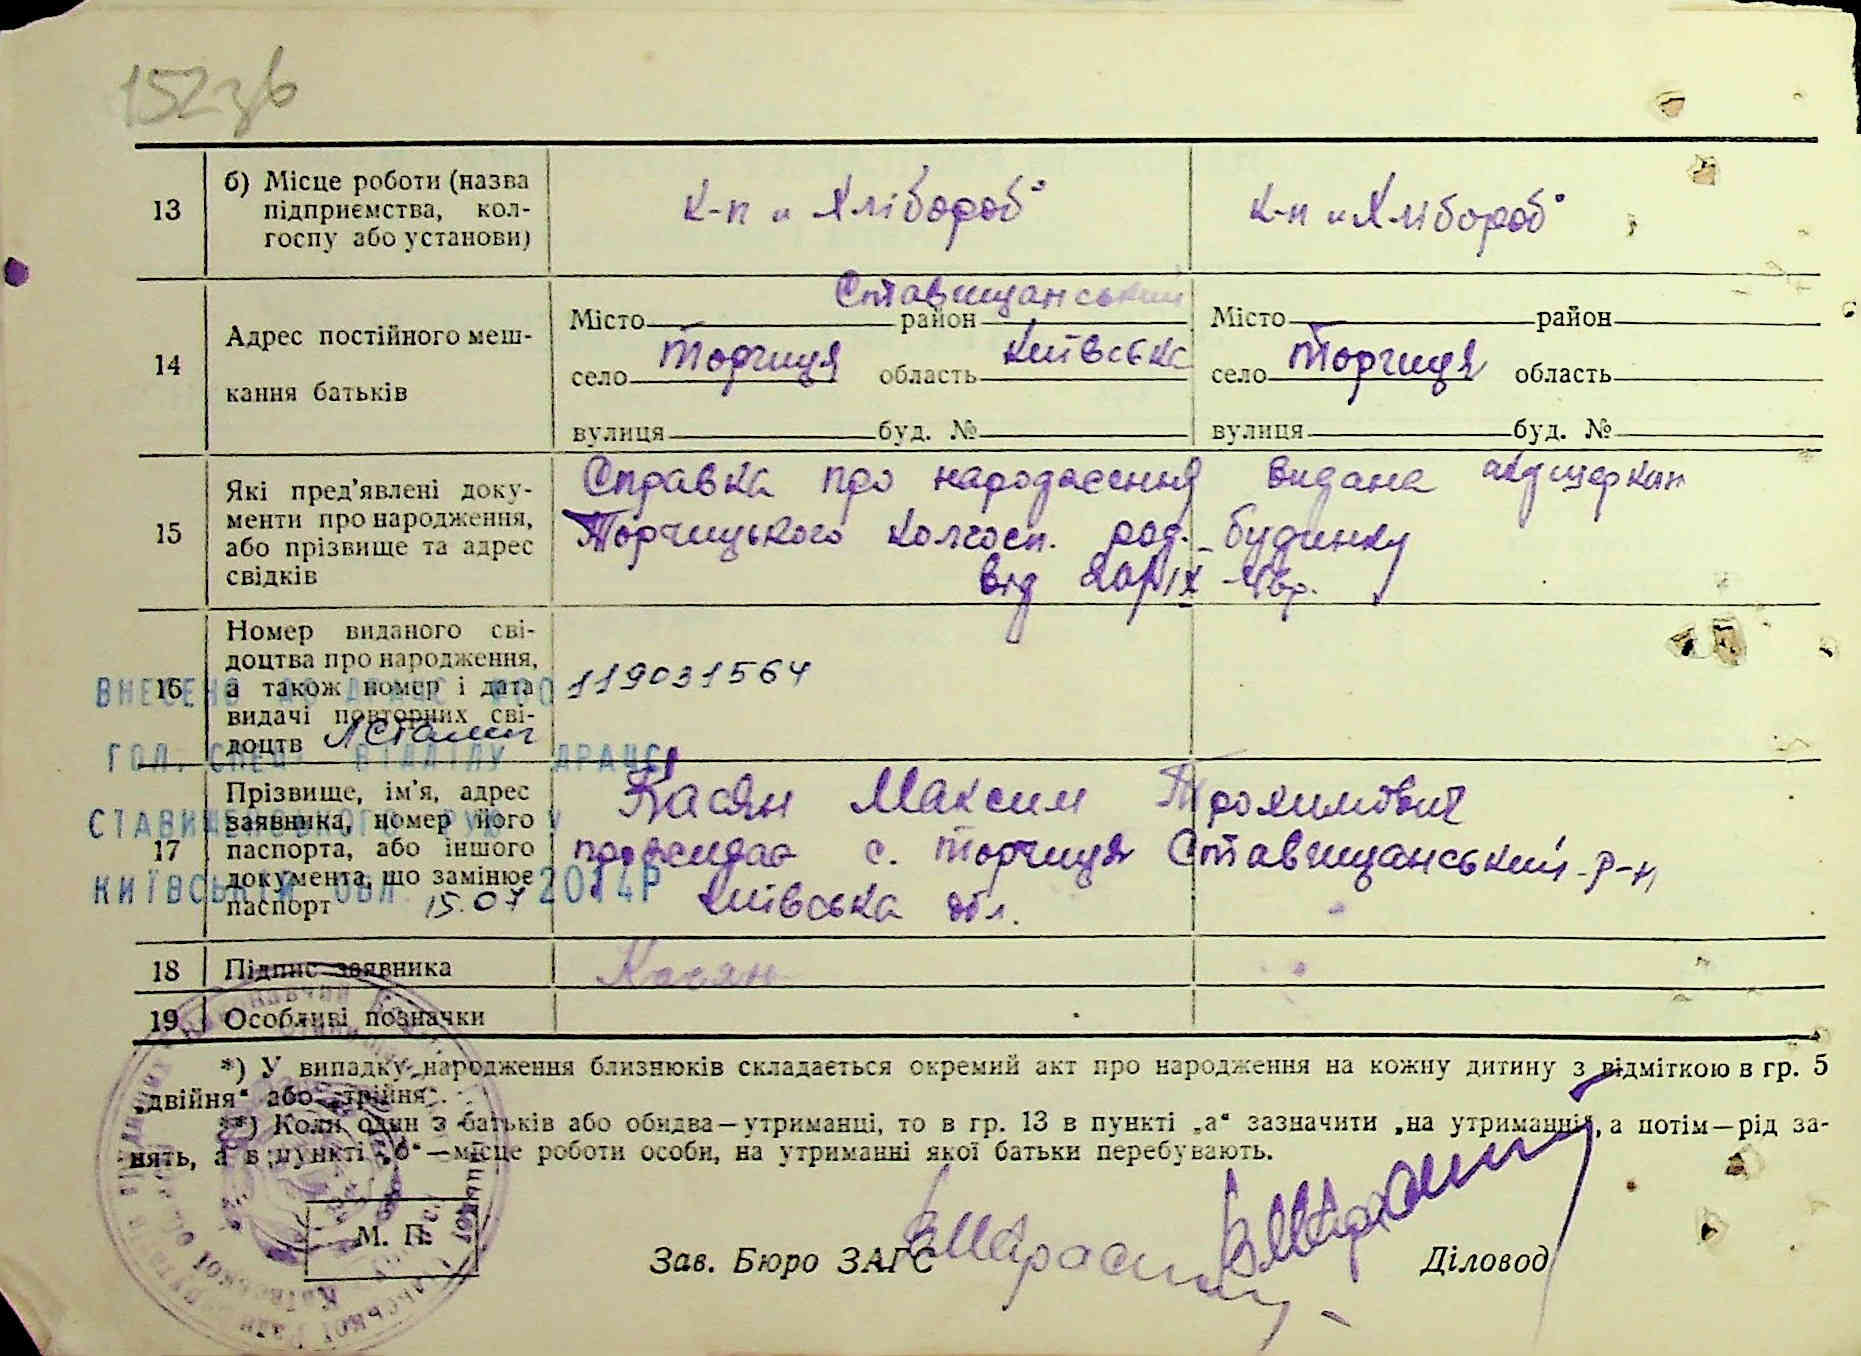 152зв
13 б) Місце роботи (назва
підприємства, кол-
госпу або установи)
к-п „Хлібороб" к-п „Хлібороб"
14 Адрес постійного меш-
кання батьків
Ставищанський
Місто район Місто район
село Торчиця область Київська село Торчиця область
вулиця буд. № вулиця буд. №
15 Які пред'явлені доку-
менти про народження,
або прізвище та адрес
свідків
Справка про народження видана
Торчицького колгосп. род. будинку
від
16 Номер виданого сві-
доцтва про народження,
а також номер і дата
видачі повторних сві-
доцтв
119031564
ВНЕСЕНО ДО ДРАЦС
ГОЛ. СПЕЦ. ВІДДІЛУ ДРАЦС
СТАВИЩЕНСЬКОГО РУЮ У
КИЇВСЬКІЙ ОБЛ. 15.07 2014Р
17 Прізвище, ім'я, адрес
заявника, номер його
паспорта, або іншого
документа, що замінює
паспорт
Касян Максим Трохимович
проживає с. Торчиця Ставищанський р-н
Київська обл.
18 Підпис заявника Касян
19 Особливі позначки
*) У випадку народження близнюків складається окремий акт про народження на кожну дитину з відміткою в гр. 5
„двійня" або „трійня".
**) Коли один з батьків або обидва—утриманці, то в гр. 13 в пункті „а" зазначити „на утриманні", а потім—рід за-
нять, а в пункті „б"—місце роботи особи, на утриманні якої батьки перебувають.
М. П.
Зав. Бюро ЗАГС Діловод